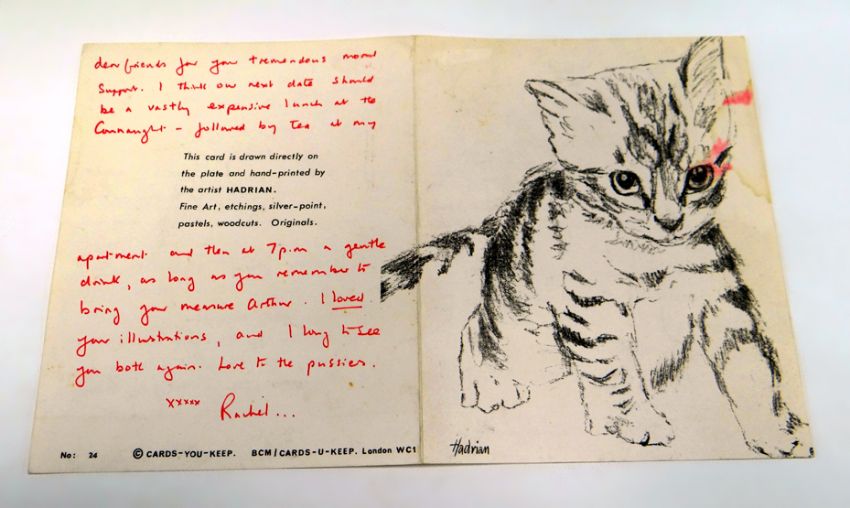 dear friends for your tremendous moral
Support. I think our next date should
be a vastly expensive lunch at the
Connaught - followed by tea at my
This card is drawn directly on
the plate and hand-printed by
the artist HADRIAN.
Fine Art, etchings, silver-point,
pastels, woodcuts. Originals.
apartment and then at 7p.m a gentle
drink, as long as you remember to
bring your measure Arthur. I loved
your illustrations, and I long to see
you both again. Love to the pussies.
xxxxx
Rachel...
No: 24 © CARDS-YOU-KEEP. BCM/CARDS-U-KEEP. London WC1
Hadrian